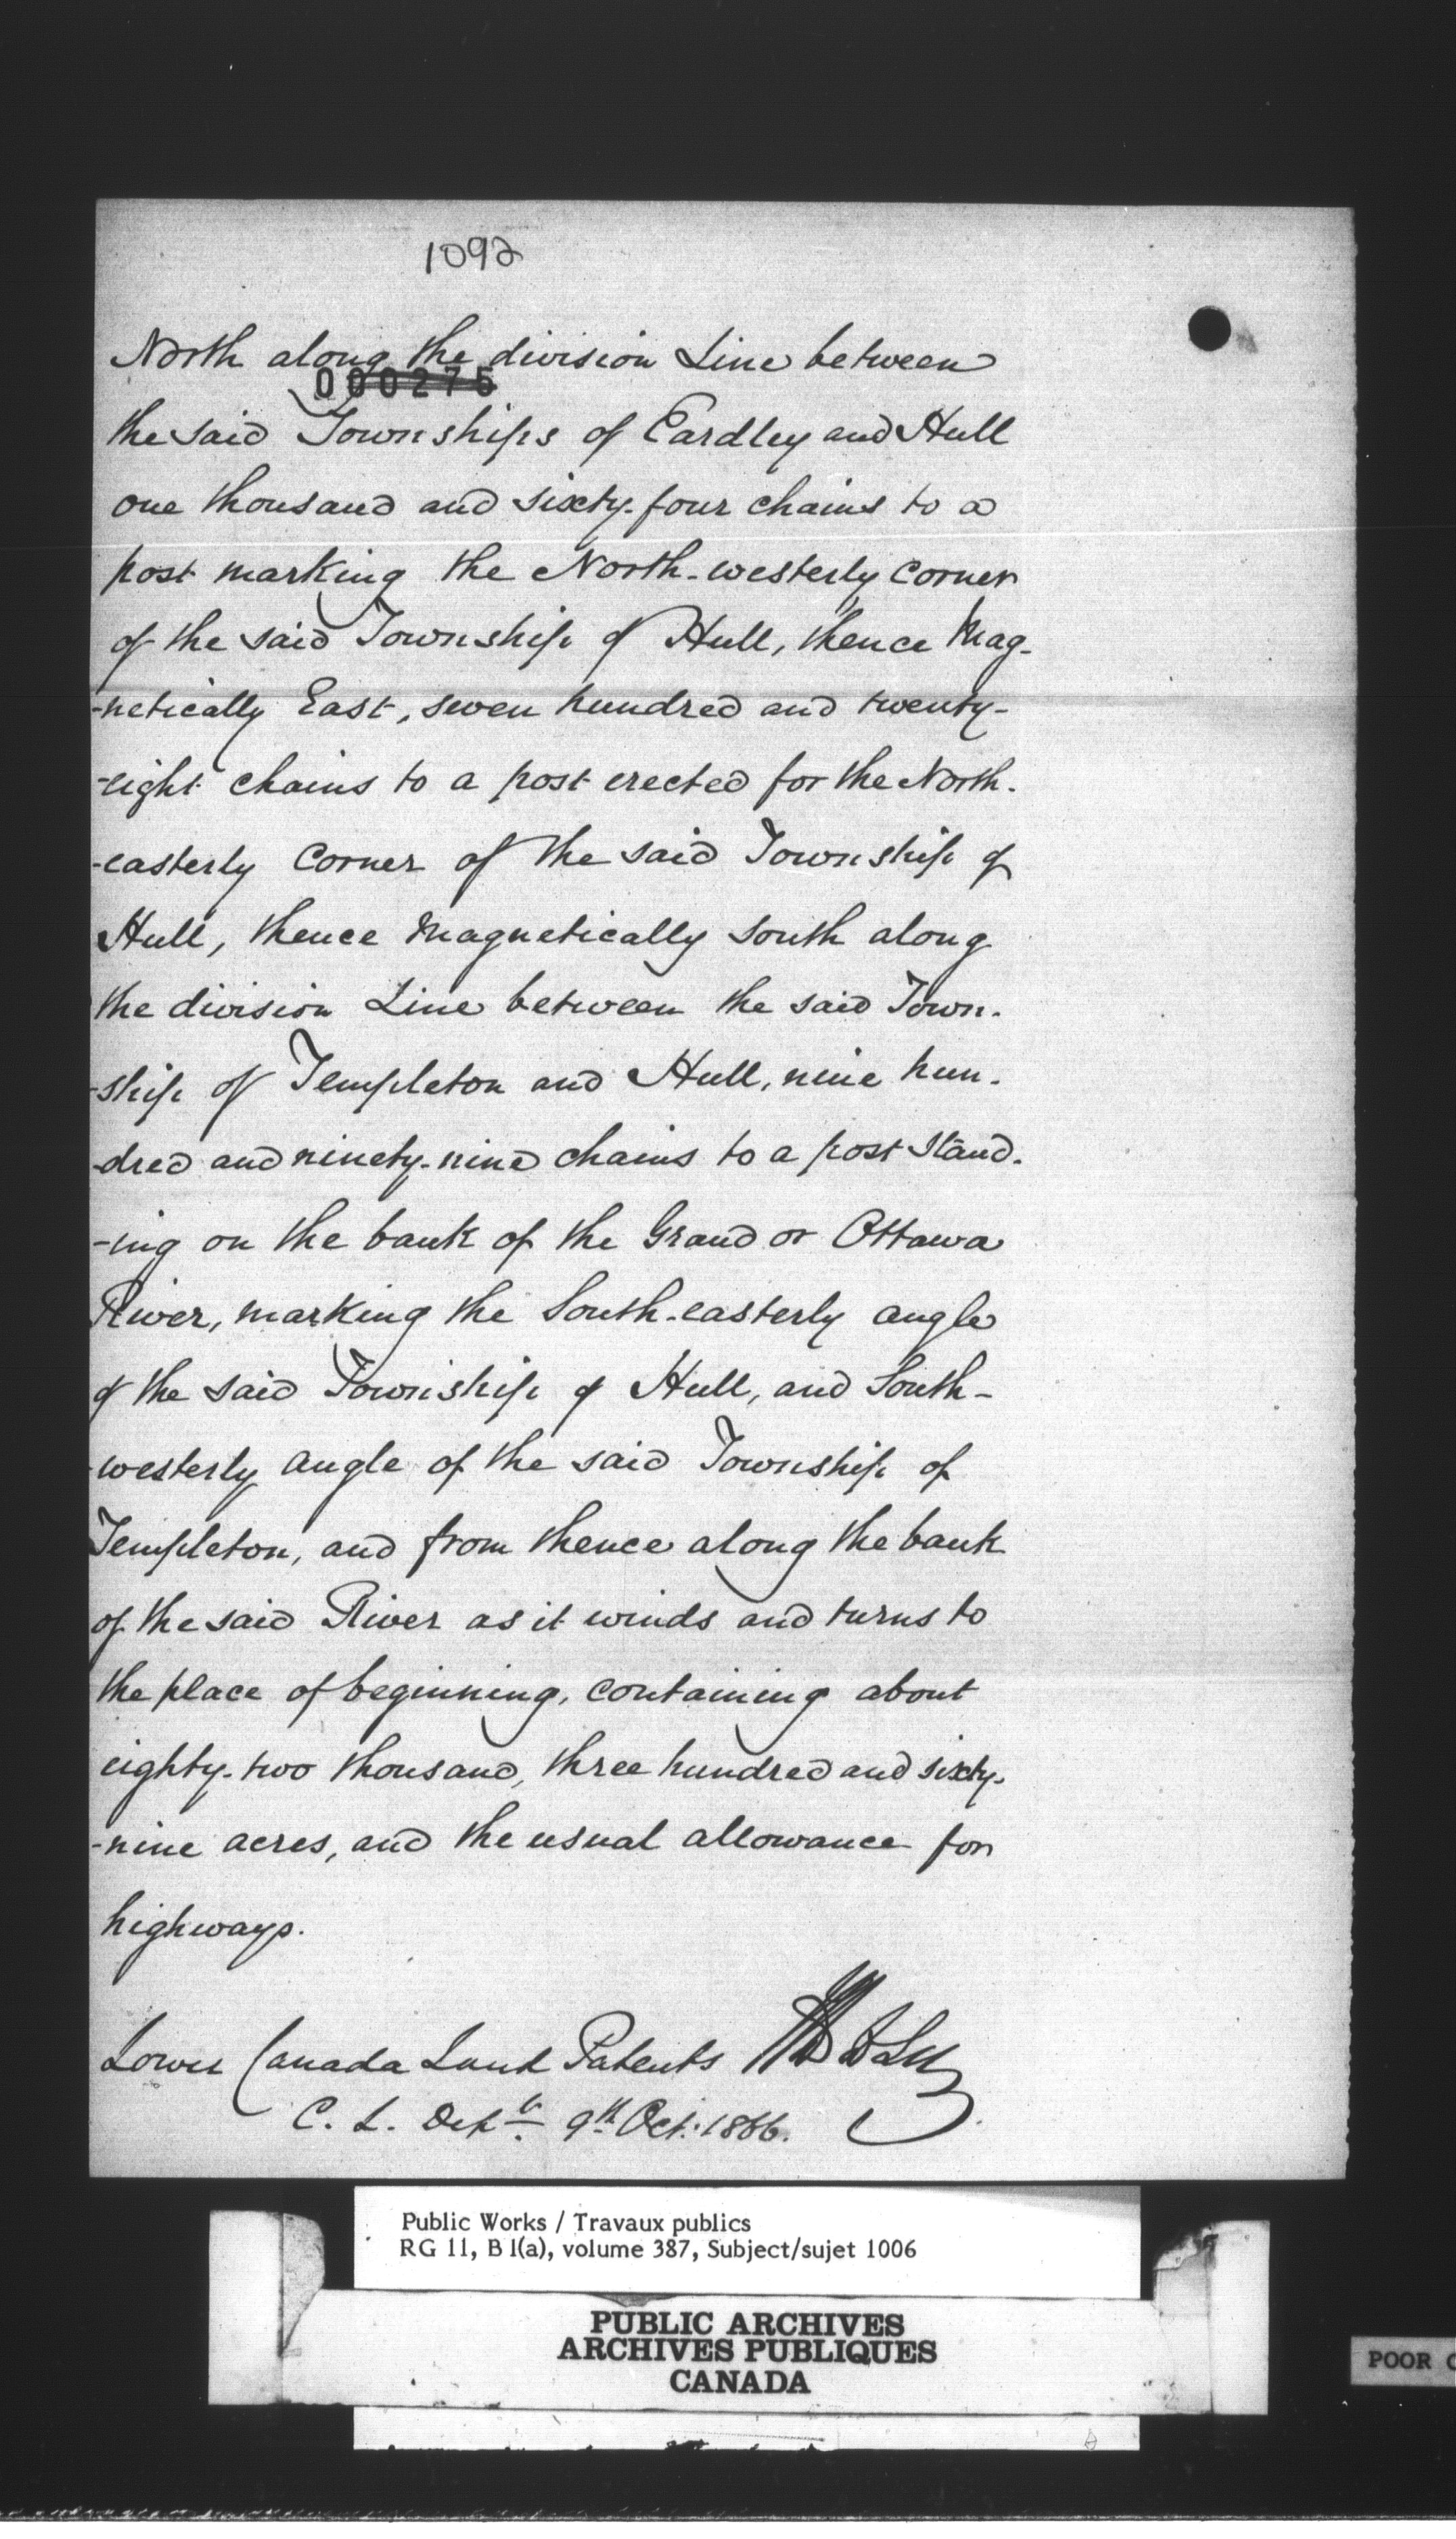 1092
North along the division Line between
000275
the said Townships of Eardley and Hull
one thousand and sixty-four chains to a
post marking the North-westerly corner
of the said Township of Hull, thence Mag-
-netically East, seven hundred and twenty-
-eight chains to a post erected for the North-
-easterly corner of the said Township of
Hull, thence Magnetically South along
the division Line between the said Town-
-ship of Templeton and Hull, nine hun-
-dred and ninety-nine chains to a post stand-
-ing on the bank of the Grand or Ottawa
River, marking the South-easterly angle
of the said Township of Hull, and South-
westerly angle of the said Township of
Templeton, and from thence along the bank
of the said River as it winds and turns to
the place of beginning, containing about
eighty-two thousand, three hundred and sixty-
-nine acres, and the usual allowance for
highways.
Lower Canada Land Patents
C. L. Dept. 9th Oct. 1866.
Public Works / Travaux publics
RG 11, B 1(a), volume 387, Subject/sujet 1006
PUBLIC ARCHIVES
ARCHIVES PUBLIQUES
CANADA
POOR